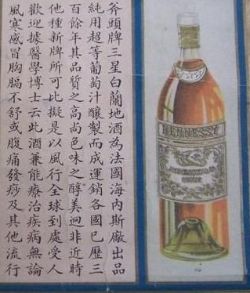 斧頭牌三星白蘭地酒為法國海內斯廠出品
純用超等葡萄汁釀製而成運銷各國已歷三
百餘年其品質之高尚色味之醇美迥非近時
他種新牌所可比擬是以風行全球到處受人
歡迎據醫學博士云此酒兼能療治疾病無論
風寒感冒胸膈不舒或腹痛發痧及其他流行
HENNESSY